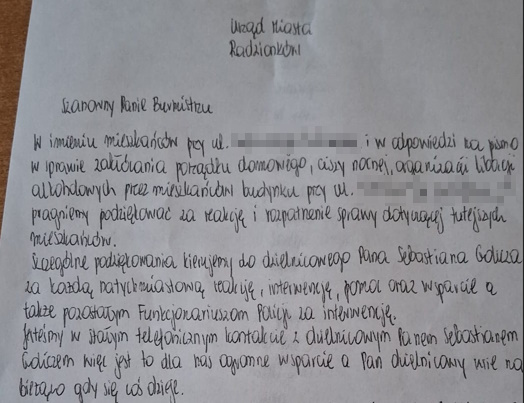 Urząd Miasta
Radzionków
Szanowny Panie Burmistrzu
W imieniu mieszkańców przy ul. i w odpowiedzi na pismo
w sprawie zakłócania porządku domowego, ciszy nocnej, organizacji libacji
alkoholowych przez mieszkańców budynku przy ul.
pragniemy podziękować za reakcję i rozpatrzenie sprawy dotyczącej tutejszych
mieszkańców.
Szczególne podziękowania kierujemy do dzielnicowego Pana Sebastiana Golicza
za każdą natychmiastową reakcję, interwencję, pomoc oraz wsparcie a
także pozostałym Funkcjonariuszom Policji za interwencję.
Jesteśmy w stałym telefonicznym kontakcie z dzielnicowym Panem Sebastianem
Goliczem więc jest to dla nas ogromne wsparcie a Pan dzielnicowy wie na
bieżąco gdy się coś dzieje.